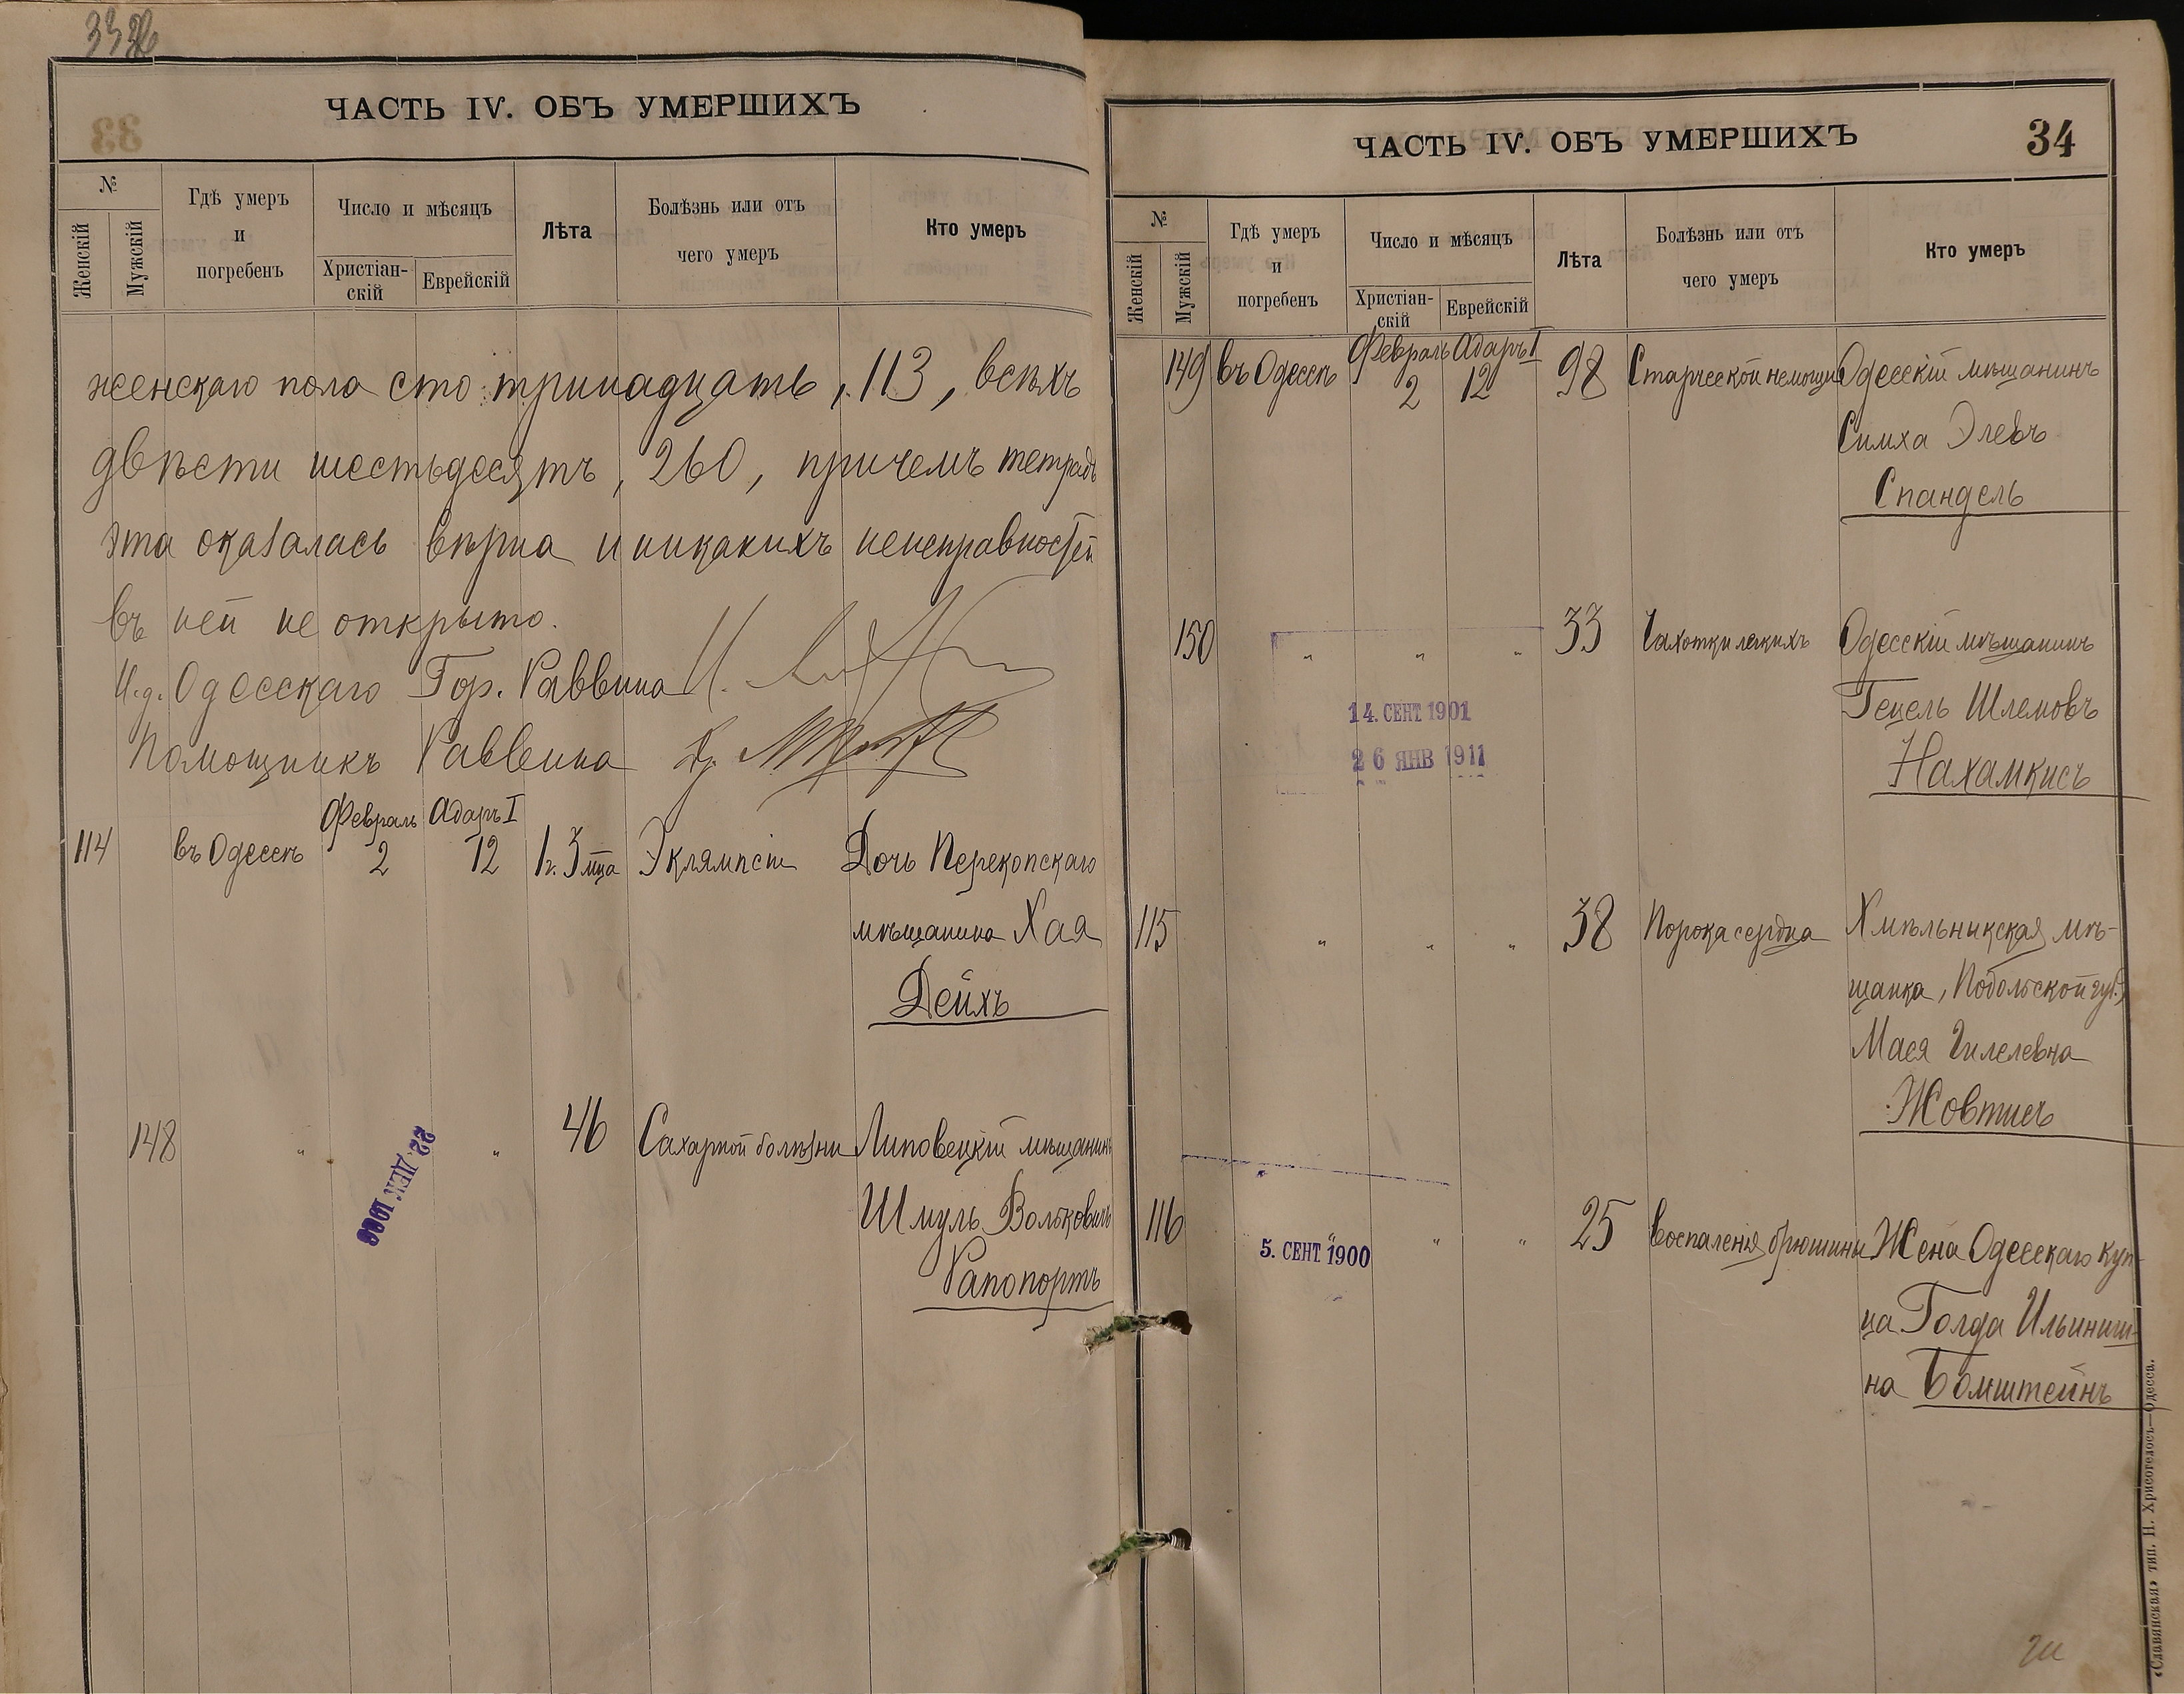 ЧАСТЬ IV. ОБЪ УМЕРШИХЪ
33
№
Женскій
Мужскій
Гдѣ умеръ
и
погребенъ
Число и мѣсяцъ
Христіан-
скій
Еврейскій
Лѣта
Болѣзнь или отъ
чего умеръ
Кто умеръ
женскаго пола сто тринадцать, 113, всѣхъ
двѣсти шестьдесятъ, 260, причемъ тетрадь
эта оказалась вѣрна и никакихъ неисправностей
въ ней не открыто.
И.д. Одесскаго Гор. Раввина
Помощникъ Раввина
Февраль Адаръ I
114 въ Одессѣ 2 12 1 г. 3 мца Эклямпсіи Дочь Перекопскаго
мѣщанина Хая
Дейхъ
148 " " 46 Сахарной болѣзни Липовецкій мѣщанинъ
22. ДЕК. 1900
Шмуль Вольковичъ
Рапопортъ
ЧАСТЬ IV. ОБЪ УМЕРШИХЪ
34
№
Женскій
Мужскій
Гдѣ умеръ
и
погребенъ
Число и мѣсяцъ
Христіан-
скій
Еврейскій
Лѣта
Болѣзнь или отъ
чего умеръ
Кто умеръ
Февраль Адаръ I
149 въ Одессѣ 2 12 98 Старческой немощи Одесскій мѣщанинъ
Симха Элевъ
Спандель
150 " " " 33 Чахотки легкихъ Одесскій мѣщанинъ
Гецель Шлемовъ
14. СЕНТ. 1901
26 ЯНВ 1911
Нахамкисъ
115 " " " 38 Порока сердца Хмѣльникская мѣ-
щанка, Подольской губ.,
Мася Гилелевна
Жовтисъ
116 " " " 25 Воспаленія брюшины Жена Одесскаго куп-
5. СЕНТ. 1900
ца Голда Ильиниш-
на Бомштейнъ
«Славянская» тип. Н. Хрисогелосъ—Одесса.